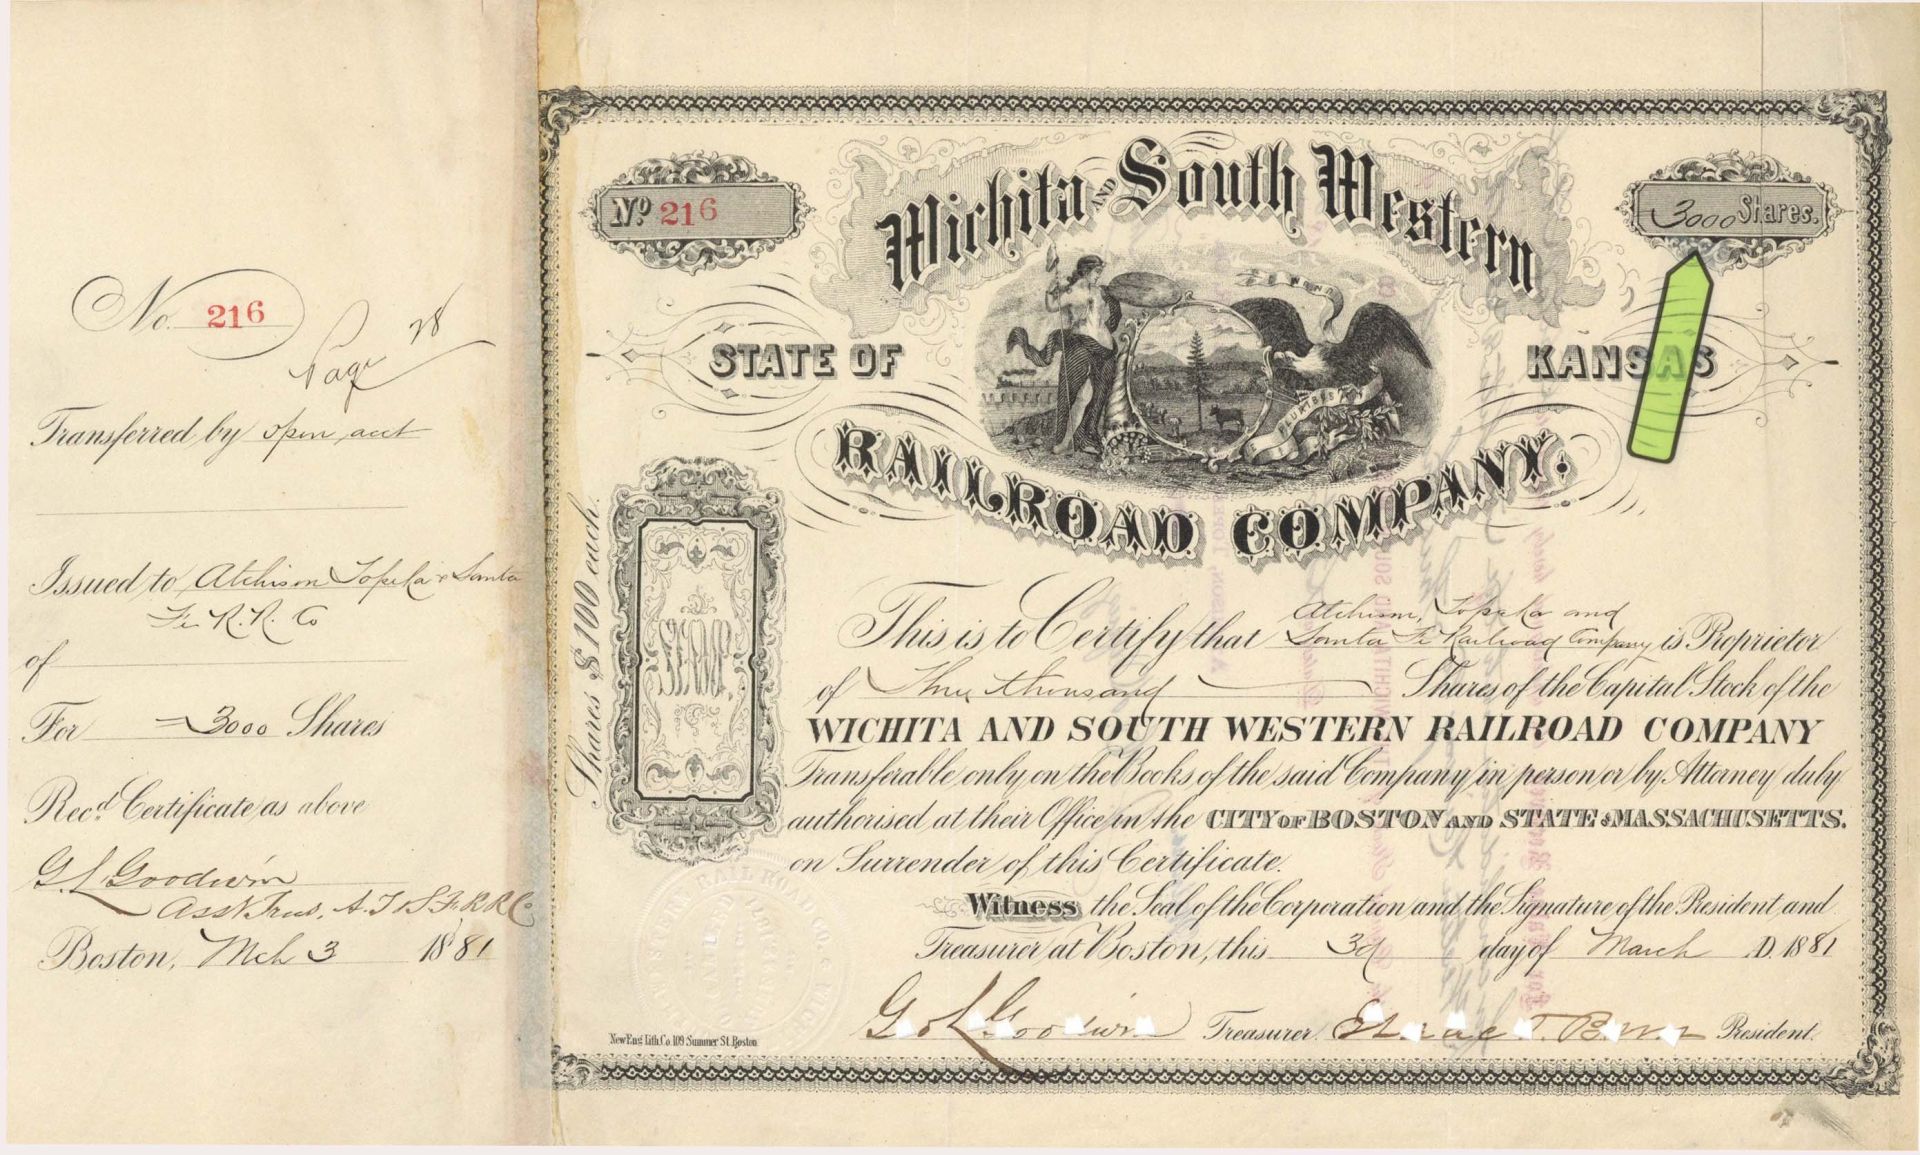 No. 216
Page 28
Transferred by open acct
Issued to Atchison Topeka & Santa
Fe R.R. Co
of
For = 3000 Shares
Recd. Certificate as above
G. L. Goodwin
Asst Treas. A.T & S.F.R.R.Co
Boston, Mch 3 1881
No 216
3000 Shares.
Wichita AND South Western
STATE OF KANSAS
RAILROAD COMPANY.
Shares $100 each.
This is to Certify that Atchison, Topeka and
Santa Fe Railroad Company is Proprietor
of Three thousand Shares of the Capital Stock of the
WICHITA AND SOUTH WESTERN RAILROAD COMPANY
Transferable only on the Books of the said Company in person or by Attorney duly
authorised at their Office in the CITY OF BOSTON AND STATE OF MASSACHUSETTS.
on Surrender of this Certificate.
Witness the Seal of the Corporation and the Signature of the President and
Treasurer at Boston, this 3d day of March A.D. 1881
G. L. Goodwin Treasurer. Isaac T. Burr President.
New Eng Lith. Co. 109 Summer St. Boston